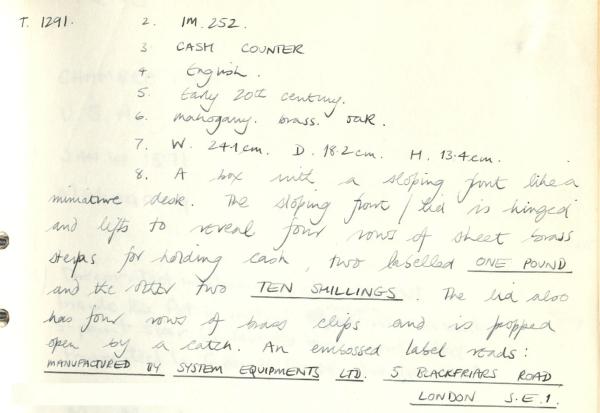 T. 1291. 2. IM. 252.
3 CASH COUNTER
4 English.
5. Early 20th century.
6. mahogany. brass. oak.
7. W. 24.1 cm. D. 18.2 cm. H. 13.4 cm.
8. A box with a sloping front like a
miniature desk. The sloping front / lid is hinged
and lifts to reveal four rows of sheet brass
steps for holding cash, two labelled ONE POUND
and the other two TEN SHILLINGS. The lid also
has four rows of brass clips and is propped
open by a catch. An embossed label reads:
MANUFACTURED BY SYSTEM EQUIPMENTS LTD. 5 BLACKFRIARS ROAD
LONDON S.E.1.